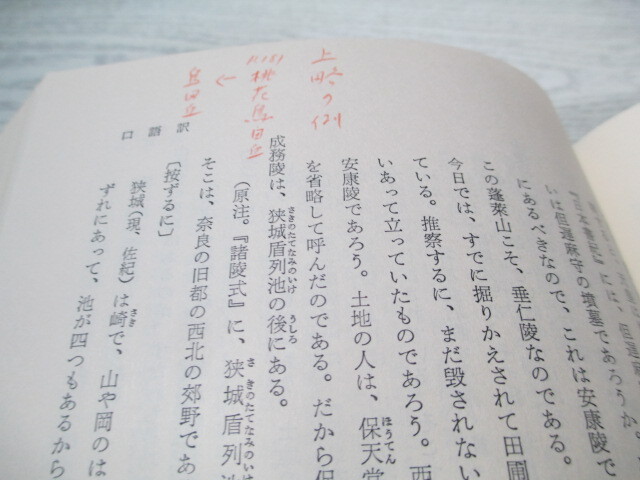 上略の例
桃花鳥田丘
↓
鳥田丘
口語訳
いは但遅麻守の墳墓であろうか。
にあるべきなので、これは安康陵で
この蓬莱山こそ、垂仁陵なのである。
今日では、すでに掘りかえされて田圃
ている。推察するに、まだ毀されない
いあって立っていたものであろう。西
安康陵であろう。土地の人は、保天堂
ほうてん
を省略して呼んだのである。だから保
成務陵は、狭城盾列池の後にある。
さきのたてなみのいけ
うしろ
(原注。『諸陵式』に、狭城盾列池
さきのたてなみのいけ
そこは、奈良の旧都の西北の郊野であ
〔按ずるに〕
狭城(現、佐紀)は崎で、山や岡のは
さき
ずれにあって、池が四つもあるから